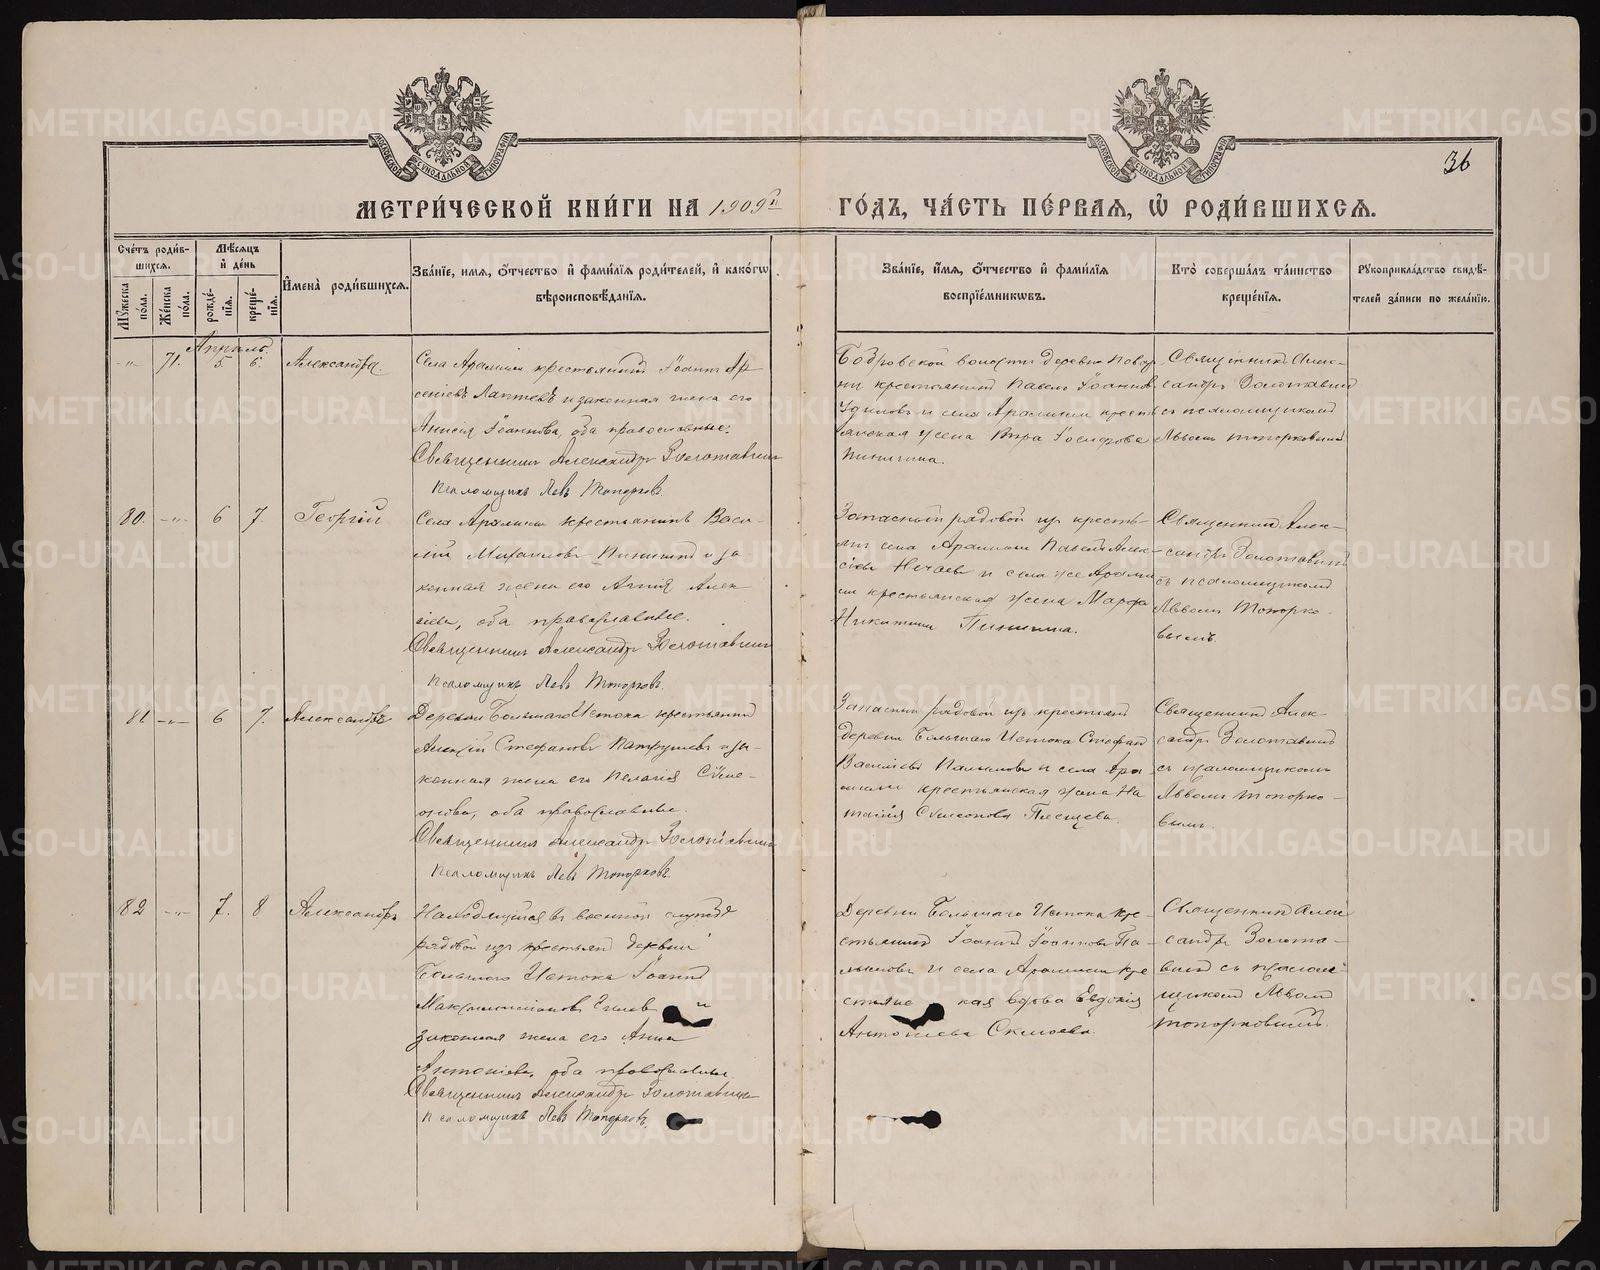 МОСКОВСКОЙ СУНОДАЛЬНОЙ ТИПОГРАФІИ
МОСКОВСКОЙ СУНОДАЛЬНОЙ ТИПОГРАФІИ
36
МЕТРИ́ЧЕСКОЙ КНИ́ГИ НА 1909й
ГО́ДЪ, ЧА́СТЬ ПЕ́РВАЯ, Ѡ РОДИ́ВШИХСЯ.
Сче́тъ роди́в-
шихся.
Мѣ́сяцъ
и де́нь
Мꙋ́жеска по́ла.
Же́нска по́ла.
рожде́-нїя.
креще́-нїя.
И́мена̀ роди́вшихся.
Зва́нїе, и́мя, ѻ́тчество и фами́лїя роди́телей, и како́гѡ
вѣроисповѣ́данїя.
Зва́нїе, и́мя, ѻ́тчество и фами́лїя
воспрїе́мникѡвъ.
Кто̀ соверша́лъ та́инство
креще́нїя.
Рꙋкоприкла́дство свидѣ́-
телей за́писи по жела́нїю.
Апрѣль.
-"- 71. 5. 6. Александра.
Села Арамили крестьянинъ Іоаннъ Ар
сеніевъ Лаптевъ и законная жена его
Анисія Іоаннова, оба православные.
Священникъ Александръ Золотавинъ
Псаломщикъ Левъ Топорковъ.
Бобровской волости деревни
крестьянинъ Павелъ Іоаннов
и села Арамили крестъ
янская жена Іосифова
Пинигина.
Священникъ Алек-
сандръ Золотавинъ
съ псаломщикомъ
Львомъ Топорковымъ
80. -"- 6 7. Георгій
Села Арамили крестьянинъ Васи-
лій Михаиловъ Пинигинъ и за
конная жена его Агнія Алек
сіева, оба православные.
Священникъ Александръ Золотавинъ
Псаломщикъ Левъ Топорковъ.
Запасный рядовой изъ кресть-
янъ села Арамили Павелъ Алек-
сіевъ Нечаевъ и села же Арами
ли крестьянская жена Марфа
Никитина Пинигина.
Священникъ Алек-
сандръ Золотавинъ
съ псаломщикомъ
Львомъ Топорко-
вымъ.
81 -"- 6 7. Александръ
Деревни Большаго Истока крестьянинъ
Алексій Стефановъ Патрушевъ и за-
конная жена его Пелагія Сѵме-
онова, оба православные.
Священникъ Александръ Золотавинъ
Псаломщикъ Левъ Топорковъ.
Запасный рядовой изъ крестьянъ
деревни Большаго Истока Стефанъ
Василіевъ и села Ара
мили крестьянская жена На
талія Сѵмеонова Плещева.
Священникъ Алек-
сандръ Золотавинъ
съ псаломщикомъ
Львомъ Топорко-
вымъ.
82 -"- 7. 8 Александръ
Находящійся въ военной службѣ
рядовой изъ крестьянъ деревни
Большаго Истока Іоаннъ
и
законная жена его Анна
Антоніева, оба православные.
Священникъ Александръ Золотавинъ
Псаломщикъ Левъ Топорковъ.
Деревни Большаго Истока кре-
стьянинъ Іоаннъ Іоанновъ Па-
и села Арамили кре
стьянс кая вдова Евдокія
Антоніева
Священникъ Алек
сандръ Золота-
винъ съ псалом-
щикомъ Львомъ
Топорковымъ.
METRIKI.GASO-URAL.RU